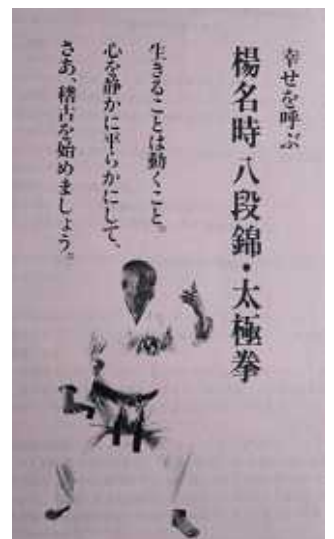 幸せを呼ぶ
楊名時八段錦・太極拳
生きることは動くこと。
心を静かに平らかにして、
さあ、稽古を始めましょう。